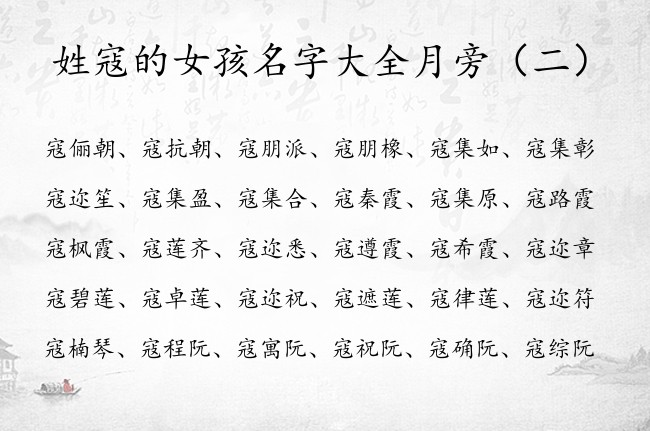 姓寇的女孩名字大全月旁（二）
寇俪朝、寇抗朝、寇朋派、寇朋橡、寇集如、寇集彰
寇迩笙、寇集盈、寇集合、寇秦霞、寇集原、寇路霞
寇枫霞、寇莲齐、寇迩悉、寇遵霞、寇希霞、寇迩章
寇碧莲、寇卓莲、寇迩祝、寇遮莲、寇律莲、寇迩符
寇楠琴、寇程阮、寇寓阮、寇祝阮、寇确阮、寇综阮